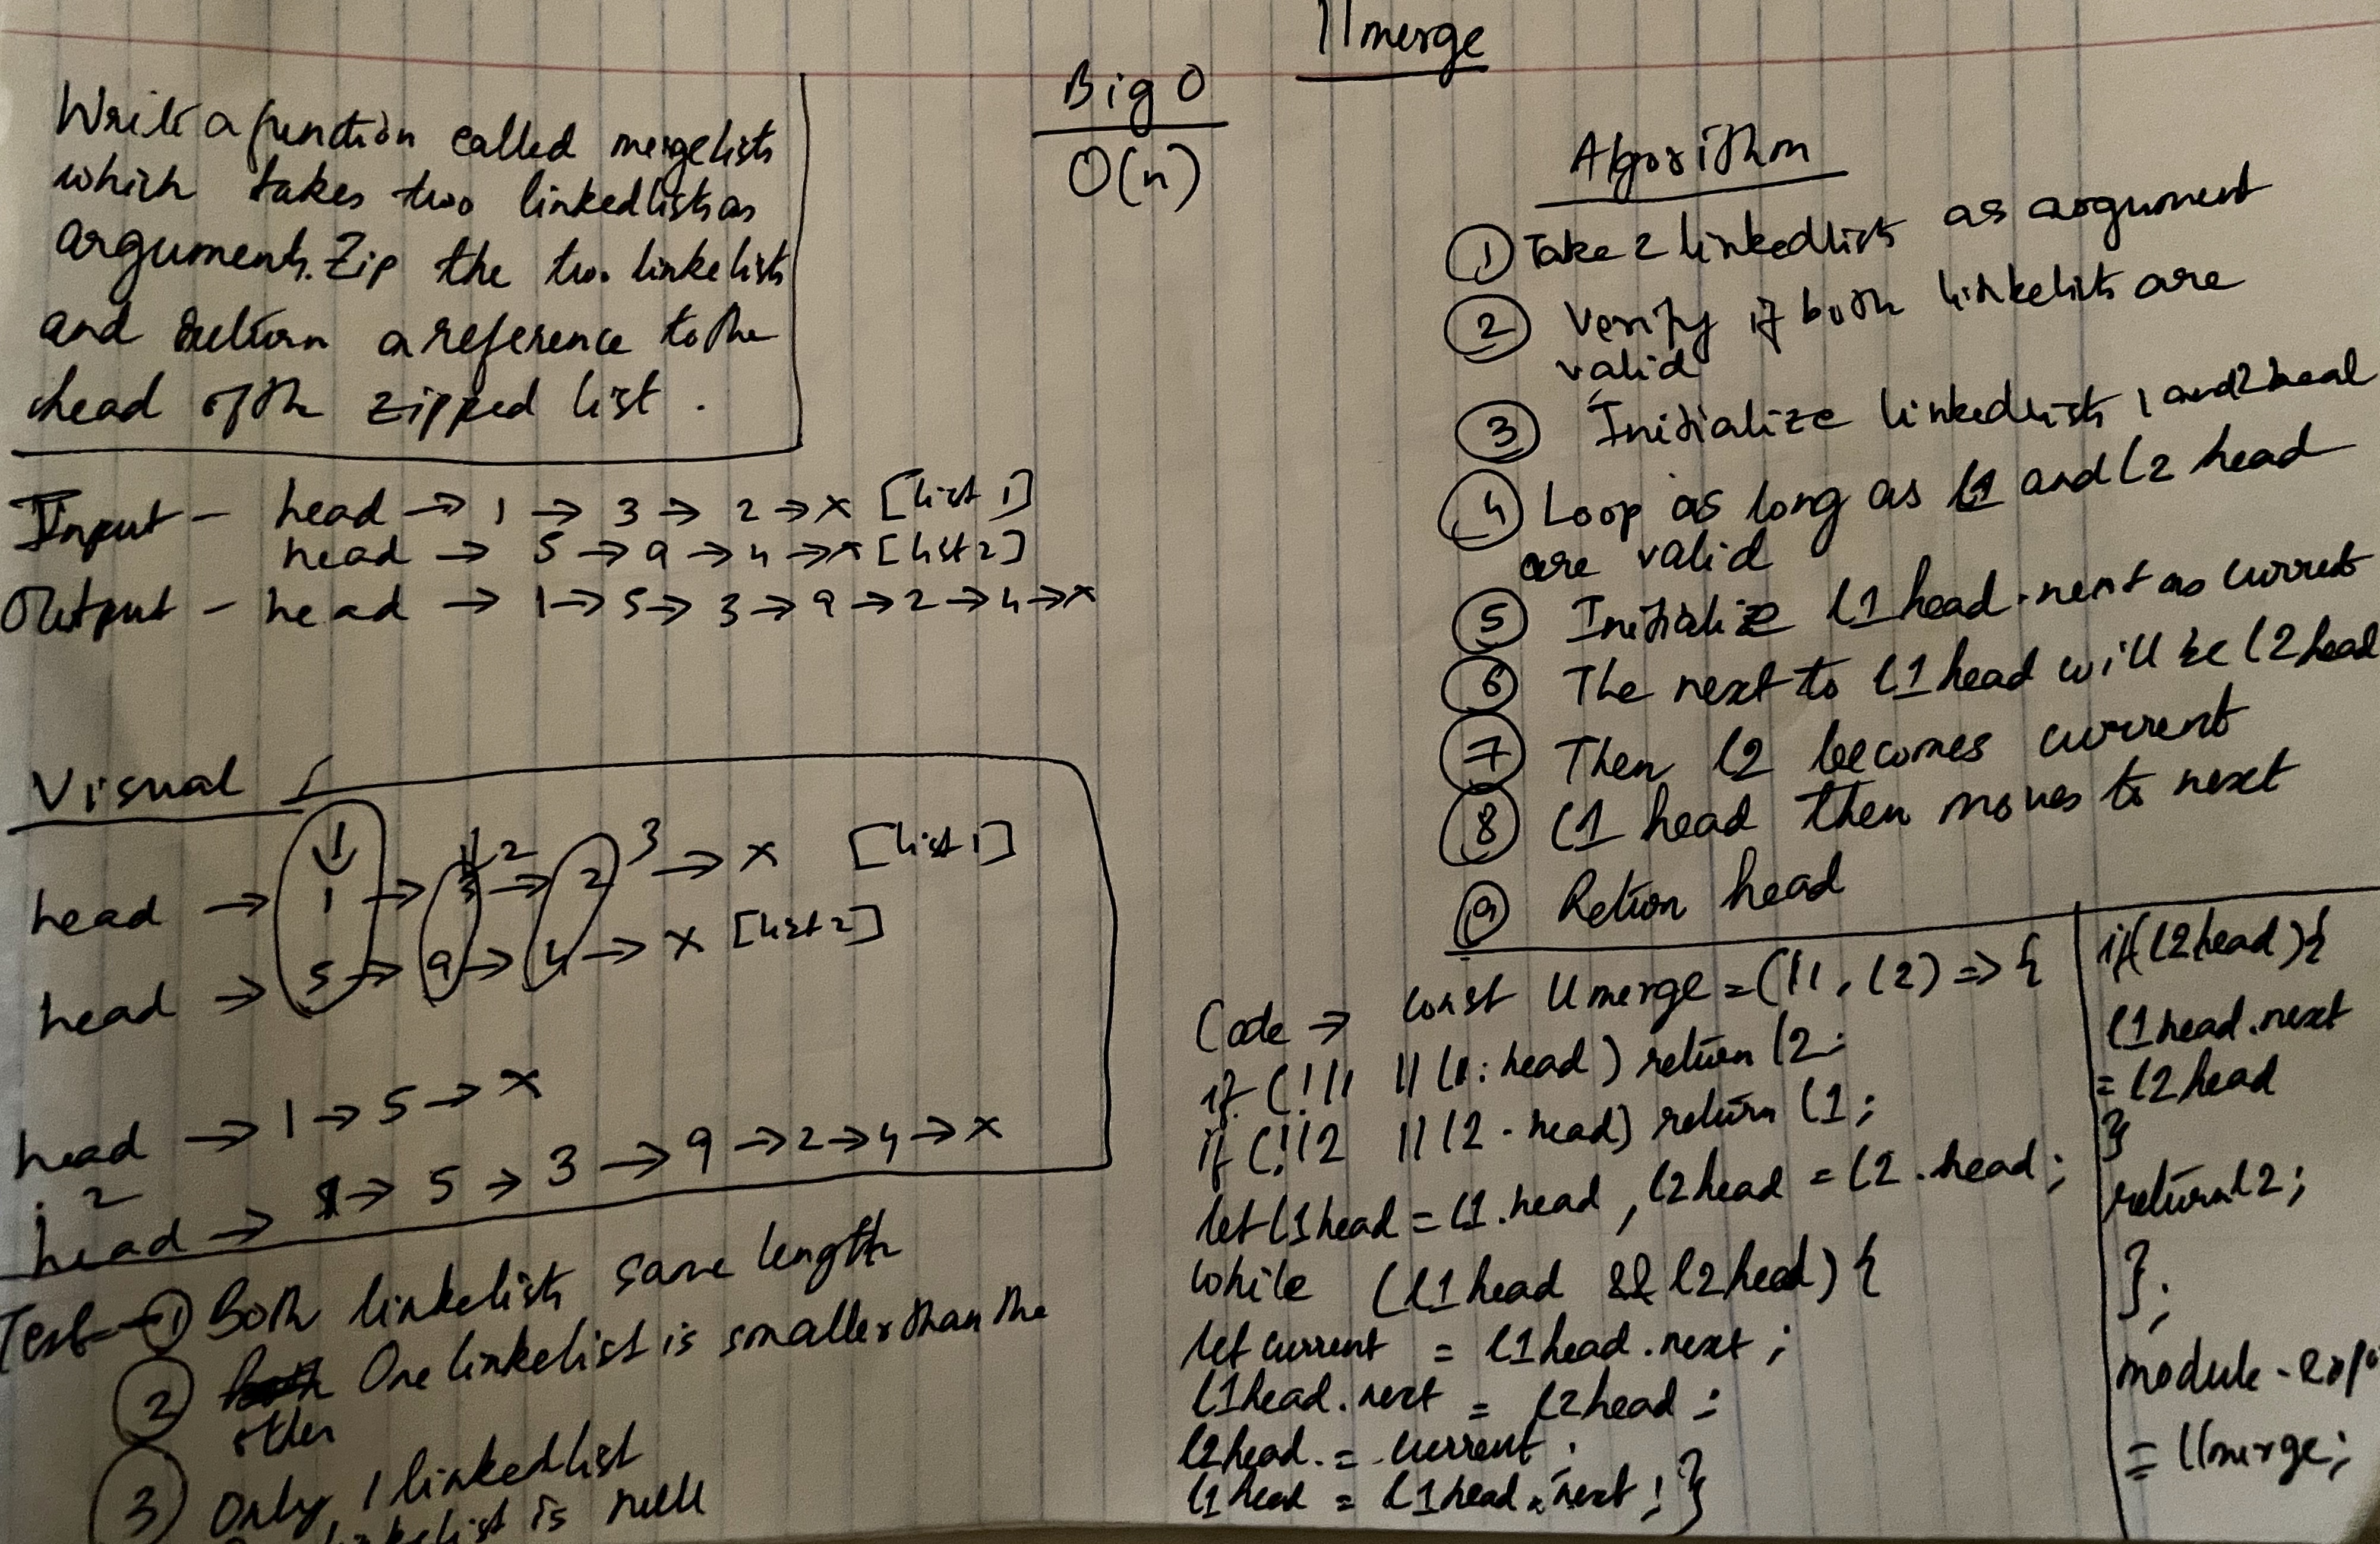 llmerge
Write a function called mergelists
which takes two linkedlists as
arguments. Zip the two linkelists
and return a reference to the
head of the zipped list.
Big O
O(n)
Input - head → 1 → 3 → 2 → x [list 1]
head → 5 → 9 → 4 → x [list 2]
Output - head → 1 → 5 → 3 → 9 → 2 → 4 → x
Visual
1 2 3
head → 1 → 3 → 2 → x [list 1]
head → 5 → 9 → 4 → x [list 2]
head → 1 → 5 → x
2
head → 1 → 5 → 3 → 9 → 2 → 4 → x
Test → ① Both linkelists same length
② One linkelist is smaller than the
other
③ Only 1 linkedlist
linkelist is null
Algorithm
① Take 2 linkedlists as argument
② Verify if both linkelists are
valid
③ Initialize linkedlists 1 and 2 head
④ Loop as long as l1 and l2 head
are valid
⑤ Initialize l1head.next as current
⑥ The next to l1head will be l2head
⑦ Then l2 becomes current
⑧ l1 head then moves to next
⑨ Return head
Code → const llmerge = (l1, l2) => {
if (!l1 || l1.head) return l2;
if (!l2 || l2.head) return l1;
let l1head = l1.head, l2head = l2.head;
while (l1head && l2head) {
let current = l1head.next;
l1head.next = l2head;
l2head. = current;
l1head = l1head.next; }
if(l2head){
l1head.next
= l2head
}
return l2;
};
module.expo
= llmerge;